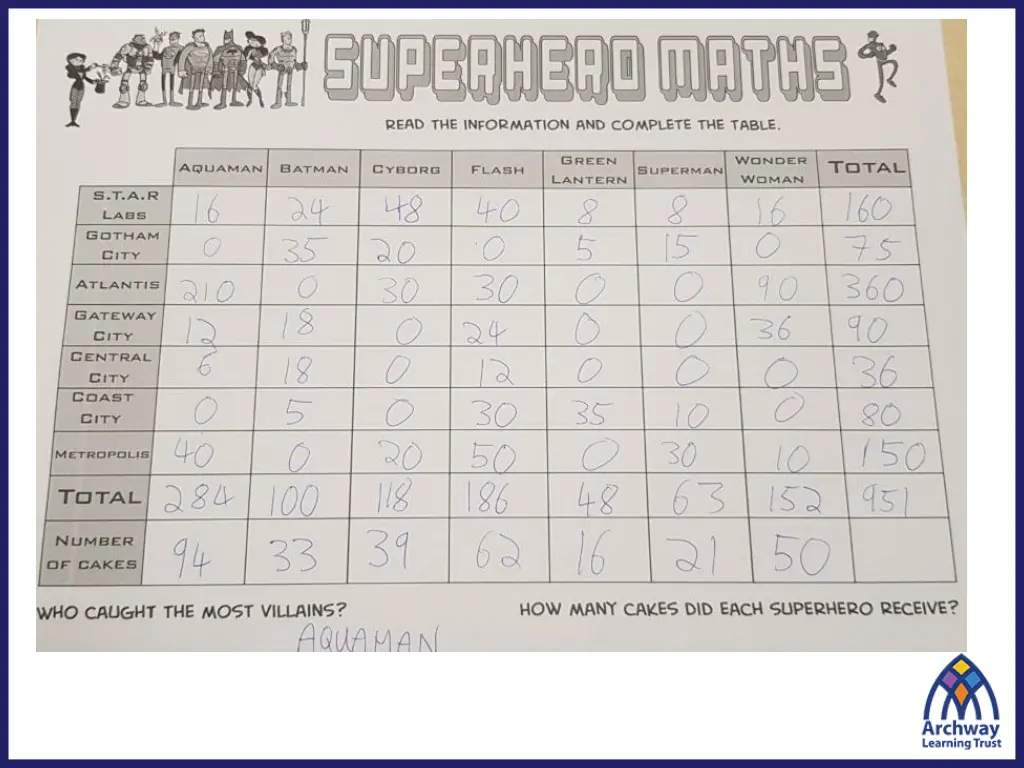 SUPERHERO MATHS
READ THE INFORMATION AND COMPLETE THE TABLE.
AQUAMAN BATMAN CYBORG FLASH GREEN LANTERN SUPERMAN WONDER WOMAN TOTAL
S.T.A.R LABS 16 24 48 40 8 8 16 160
GOTHAM CITY 0 35 20 0 5 15 0 75
ATLANTIS 210 0 30 30 0 0 90 360
GATEWAY CITY 12 18 0 24 0 0 36 90
CENTRAL CITY 6 18 0 12 0 0 0 36
COAST CITY 0 5 0 30 35 10 0 80
METROPOLIS 40 0 20 50 0 30 10 150
TOTAL 284 100 118 186 48 63 152 951
NUMBER OF CAKES 94 33 39 62 16 21 50
WHO CAUGHT THE MOST VILLAINS? HOW MANY CAKES DID EACH SUPERHERO RECEIVE?
AQUAMAN
Archway
Learning Trust